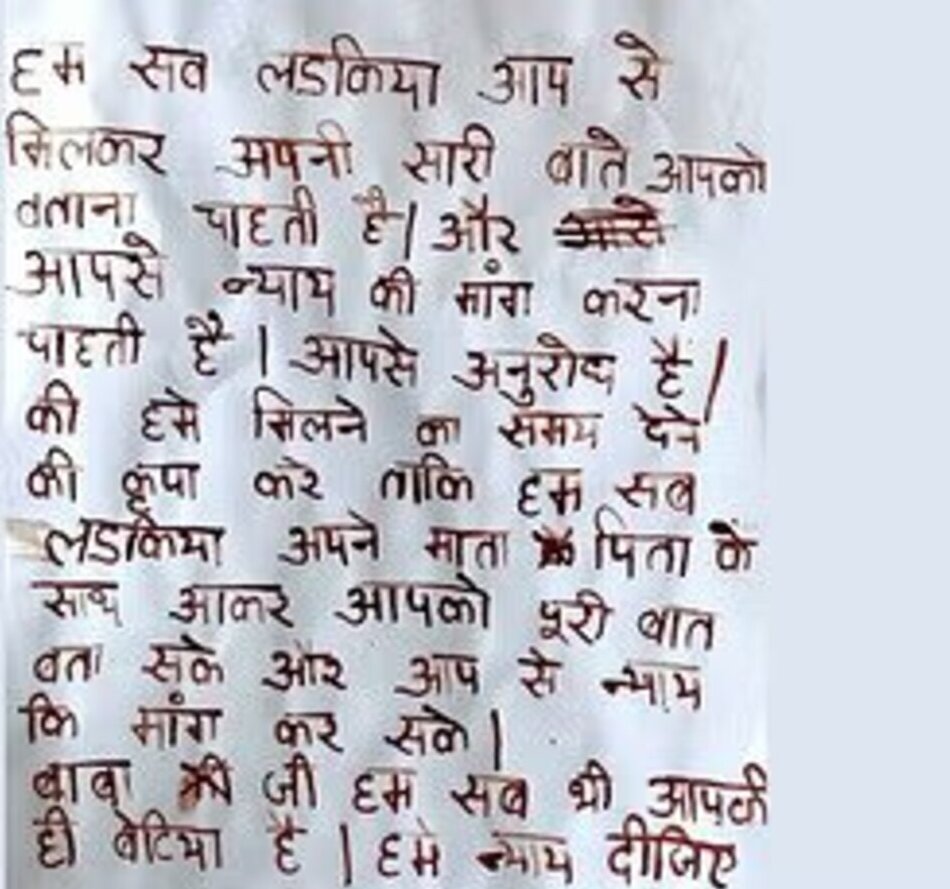 हम सव लडकिया आप से
मिलकर अपनी सारी वाते आपको
वताना चाहती है। और
आपसे न्याय की मांग करना
चाहती है । आपसे अनुरोध है।
की हमे मिलने का समय देने
की कृपा करे ताकि हम सब
लडकिया अपने माता पिता के
साथ आकर आपको पूरी वात
वता सके और आप से न्याय
कि मांग कर सके।
बाबा जी हम सब भी आपकी
ही वेटिया है । हमे न्याय दीजिए